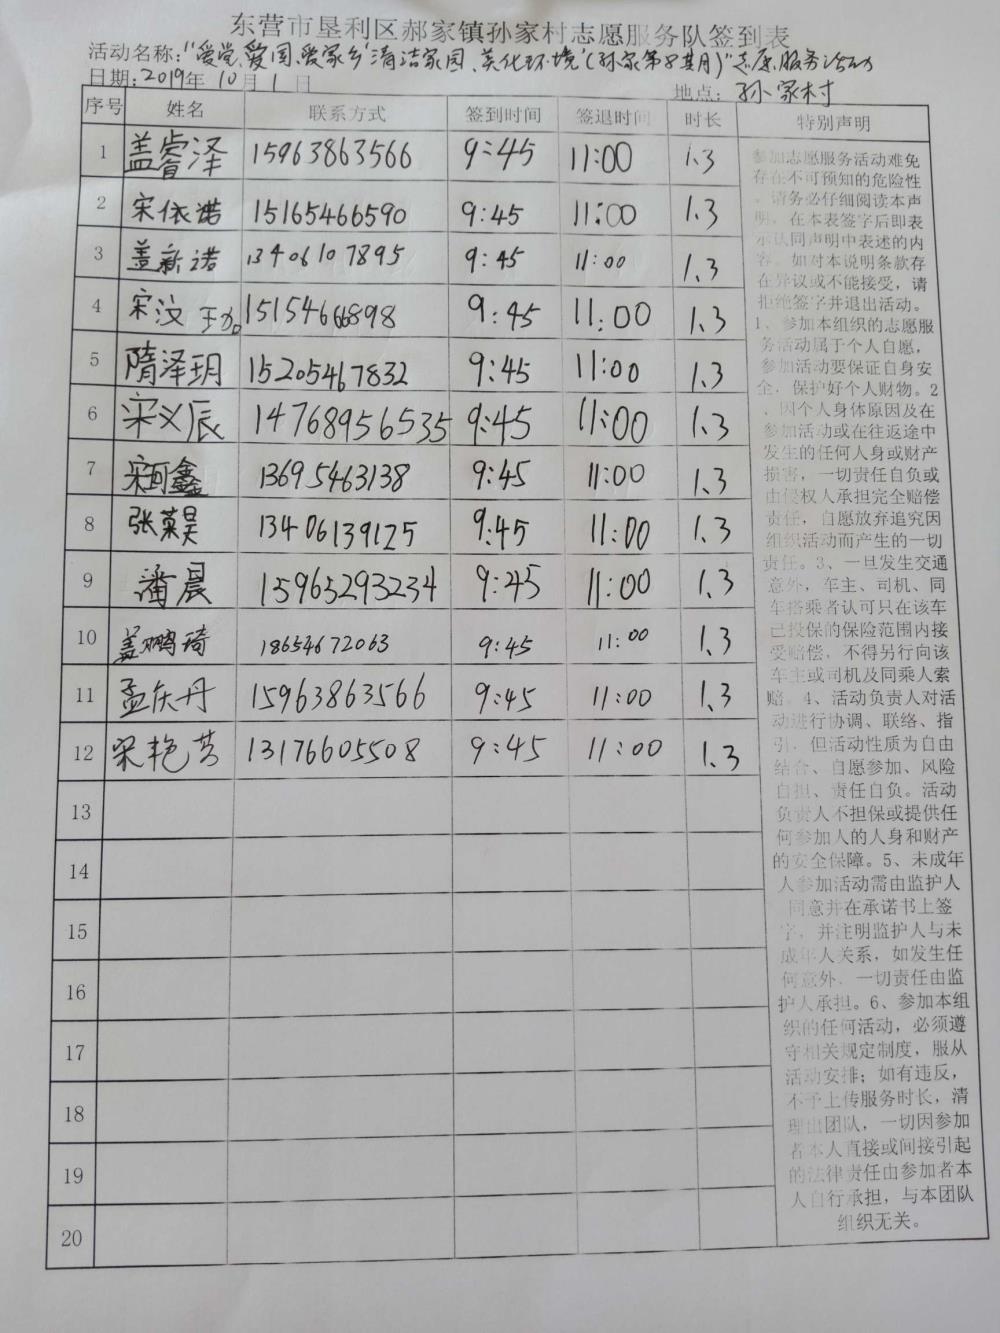 东营市垦利区郝家镇孙家村志愿服务队签到表
活动名称:“爱党、爱国、爱家乡‘清洁家园、美化环境’(孙家第8期)”志愿服务活动
日期:2019年10月1日 地点:孙家村
序号 姓名 联系方式 签到时间 签退时间 时长 特别声明
1 盖睿泽 15963863566 9:45 11:00 1.3
2 宋依诺 15165466590 9:45 11:00 1.3
3 盖新诺 13406107895 9:45 11:00 1.3
4 宋汶珈 15154666898 9:45 11:00 1.3
5 隋泽玥 15205467832 9:45 11:00 1.3
6 宋义辰 14768956535 9:45 11:00 1.3
7 宋可鑫 13695463138 9:45 11:00 1.3
8 张菒昊 13406139125 9:45 11:00 1.3
9 潘晨 15965293234 9:45 11:00 1.3
10 盖鹏琦 18654672063 9:45 11:00 1.3
11 孟庆丹 15963863566 9:45 11:00 1.3
12 宋艳芳 13176605508 9:45 11:00 1.3
13
14
15
16
17
18
19
20
参加志愿服务活动难免
存在不可预知的危险性
。请务必仔细阅读本声
明。在本表签字后即表
示认同声明中表述的内
容。如对本说明条款存
在异议或不能接受，请
拒绝签字并退出活动。
1、参加本组织的志愿服
务活动属于个人自愿，
参加活动要保证自身安
全，保护好个人财物。2
、因个人身体原因及在
参加活动或在往返途中
发生的任何人身或财产
损害，一切责任自负或
由侵权人承担完全赔偿
责任，自愿放弃追究因
组织活动而产生的一切
责任。3、一旦发生交通
意外，车主、司机、同
车搭乘者认可只在该车
已投保的保险范围内接
受赔偿，不得另行向该
车主或司机及同乘人索
赔。4、活动负责人对活
动进行协调、联络、指
引，但活动性质为自由
结合、自愿参加、风险
自担、责任自负。活动
负责人不担保或提供任
何参加人的人身和财产
的安全保障。5、未成年
人参加活动需由监护人
同意并在承诺书上签
字，并注明监护人与未
成年人关系，如发生任
何意外，一切责任由监
护人承担。6、参加本组
织的任何活动，必须遵
守相关规定制度，服从
活动安排；如有违反，
不予上传服务时长，清
理出团队，一切因参加
者本人直接或间接引起
的法律责任由参加者本
人自行承担，与本团队
组织无关。